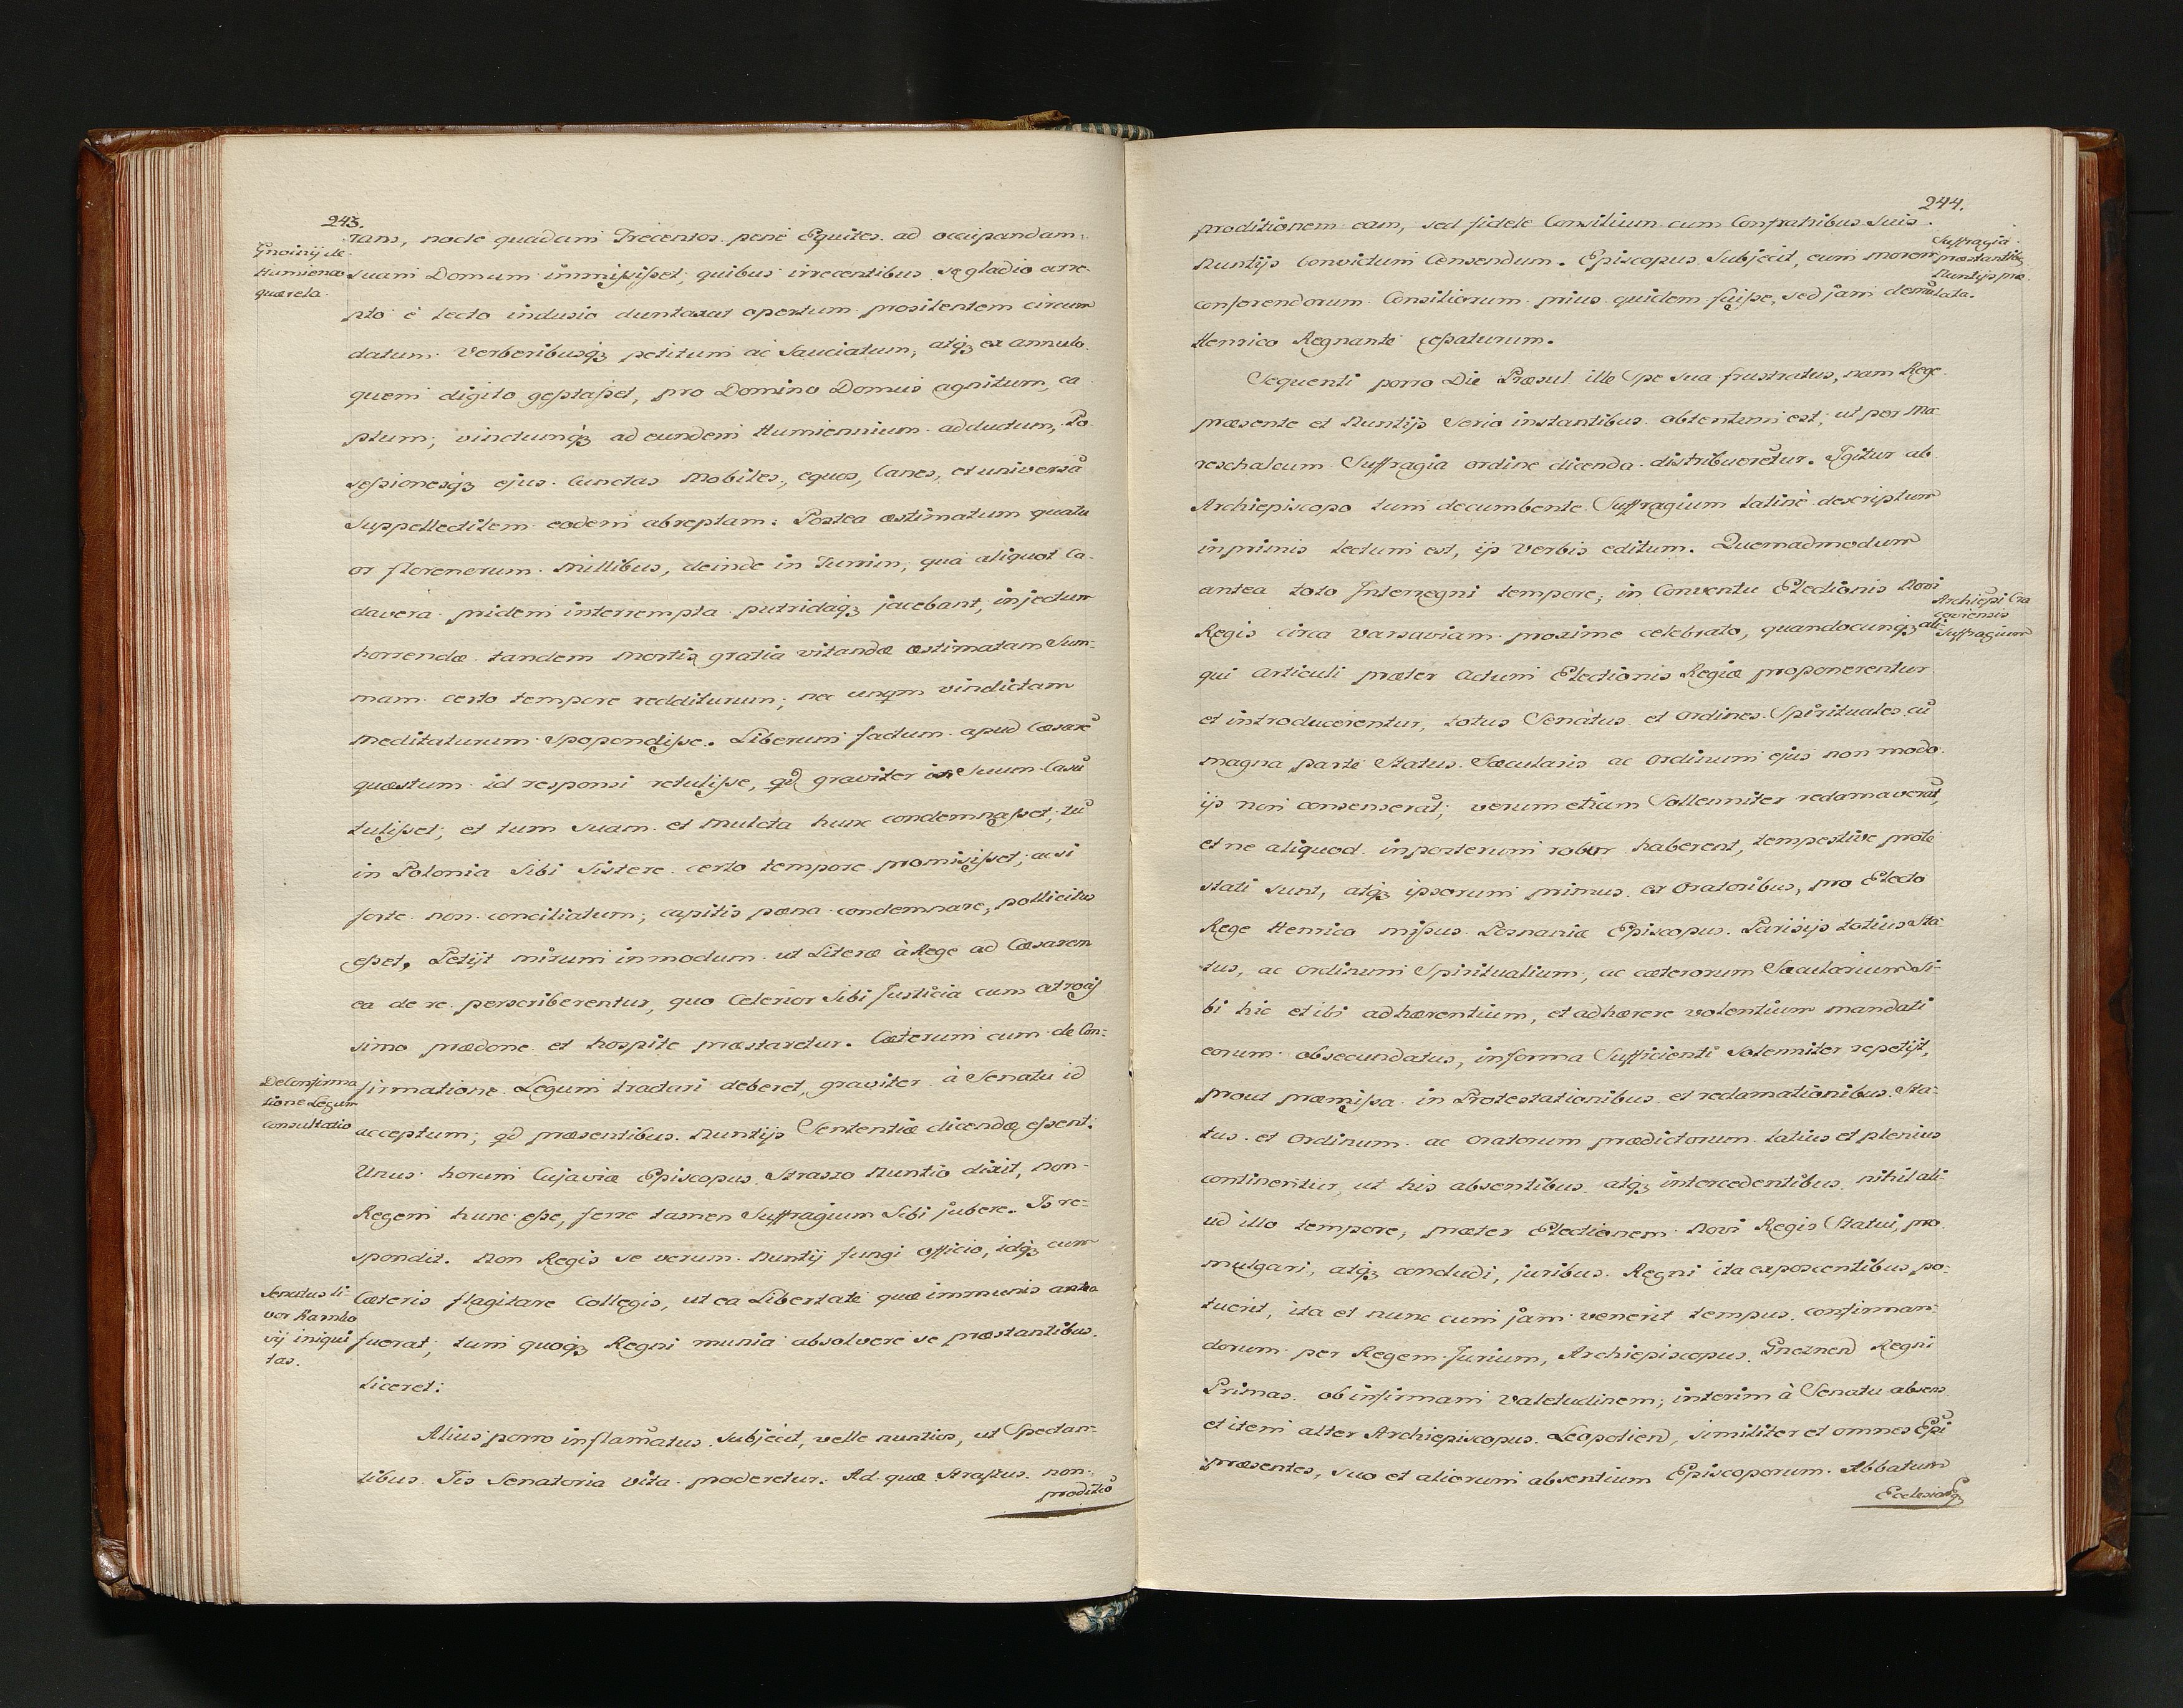 243.
rans, nocte quadam Trecentos pene Equites ad occupandam
Gnoinij de
Humiencio
quærela.
suam Domum immisisset, quibus irrecentibus se gladio arre-
pto è lecto indusio duntaxat opertum prosilentem circum
datum Verberibusq petitum ac Sauciatum, atq ex annulo
quem digito gestasset, pro Domino Domus agnitum, ca
ptum, vinctumq ad eundem Humiennium adductum, Po
sessionesq ejus Cunctas Mobiles, equos, Canes, et universã
Suppellectilem eodem abreptam. Postea æstimatum quatu
or florenorum Millibus, deinde in Turrim, qua aliquot Ca-
davera pridem interrempta putridaq jacebant, injectum
horrendæ tandem Mortis gratia vitandæ æstimatam Sum-
mam certo tempore redditurum, nec unqm vindictam
Meditaturum Spopondisse. Liberum factum apud Cæsarẽ
quæstum id responsi retulisse, qd graviter is Suum Casũ
tulisset, et tum suam et Mulcta hunc condemnasset, tũ
in Polonia Sibi Sistere certo tempore promisisset, ac si
forte non conciliatum, capitis pæna condemnare, pollicitus
esset. Petijt mirum inmodum ut Literæ à Rege ad Cæsarem
ea de re perscriberentur, quo Celerior Sibi Justicia cum atrocis
simo prædone et hospite præstaretur. Cæterum cum de Con-
De Confirma
tione Legum
consultatio
firmatione Legum tractari deberet, graviter à Senatu id
acceptum, qd præsentibus Nuntijs Sententiæ dicendæ essent.
Unus horum Cujaviæ Episcopus Straszo Nuntio dixit, non
Regem hunc esse, ferre tamen Suffragium Sibi jubere. Is re-
spondit. Non Regis se verum Nuntij fungi officio, idq cum
Senatus li-
vor
vij iniqui
tas.
Cæteris flagitare Collegis, ut ea Libertate quæ immunis antea
fuerat, tum quoq Regni munia absolvere se præstantibus
Liceret.
Alius porro inflam̃atus subjecit, velle nuntios, ut Spectan-
tibus Jis Senatoria vita proderetur. Ad quæ Strassus non
proditio
244.
proditionem eam, sed fidele Consilium cum Confratribus Suis
Suffragia
præstantib
Nuntijs præ
lata.
Nuntijs Convictum Censendum. Episcopus Subjecit, eum morem
conferendorum Consiliorum prius quidem fuisse, sed jam demũ
Henrico Regnante cessaturum.
Sequenti porro Die Præsul ille Spe sua frustratus, nam Rege
præsente et Nuntijs Serio instantibus obtentum est, ut per Ma
reschalcum Suffragia ordine dicenda distribueretur. Igitur ab
Archiepiscopo tum decumbente Suffragium latinè descriptum
inprimis lectum est, ijs Verbis editum. Quemadmodum
antea toto Interregni tempore, in Conventu Electionis Novi
Archiepi Cra
coviensis
Suffragium
Regis circa Varsaviam proxime celebrato, quandocunq ali-
qui articuli præter Actum Electionis Regiæ proponerentur
et introducerentur, totus Senatus et Ordines Spirituales cũ
magna parte Status Sæcularis ac Ordinum ejus non modo
ijs non consenserãt, verum etiam Sollenniter reclamaverãt,
et ne aliquod inposterum robur haberent, tempestive prote
stati sunt, atq ipsorum primus ex Oratoribus, pro Electo
Rege Henrico missus Posnaniæ Episcopus Parisijs totius Sta-
tus, ac Ordinum Spiritualium, ac cæterorum Sæcularium Si-
bi hic et ibi adhærentium, et adhærere volentium mandati
eorum obsecundatus, in forma Sufficienti Solenniter repetijt,
prout præmissa in Protestationibus et reclamationibus Sta-
tus et Ordinum ac Oratorum prædictorum latius et plenius
continentur, ut his absentibus atq intercedentibus nihil ali-
ud illo tempore, præter Electionem Novi Regis Statui, pro
mulgari, atq concludi, juribus Regni ita exposcentibus po-
tuerit, ita et nunc cum jam venerit tempus confirman-
dorum per Regem Jurium, Archiepiscopus Gneznen Regni
Primas ob infirmam Valetudinem, interim à Senatu absens
et item alter Archiepiscopus Leopolien, similiter et omnes Epĩ
præsentes, suo et aliorum absentium Episcoporum Abbatum
Ecclesiarq